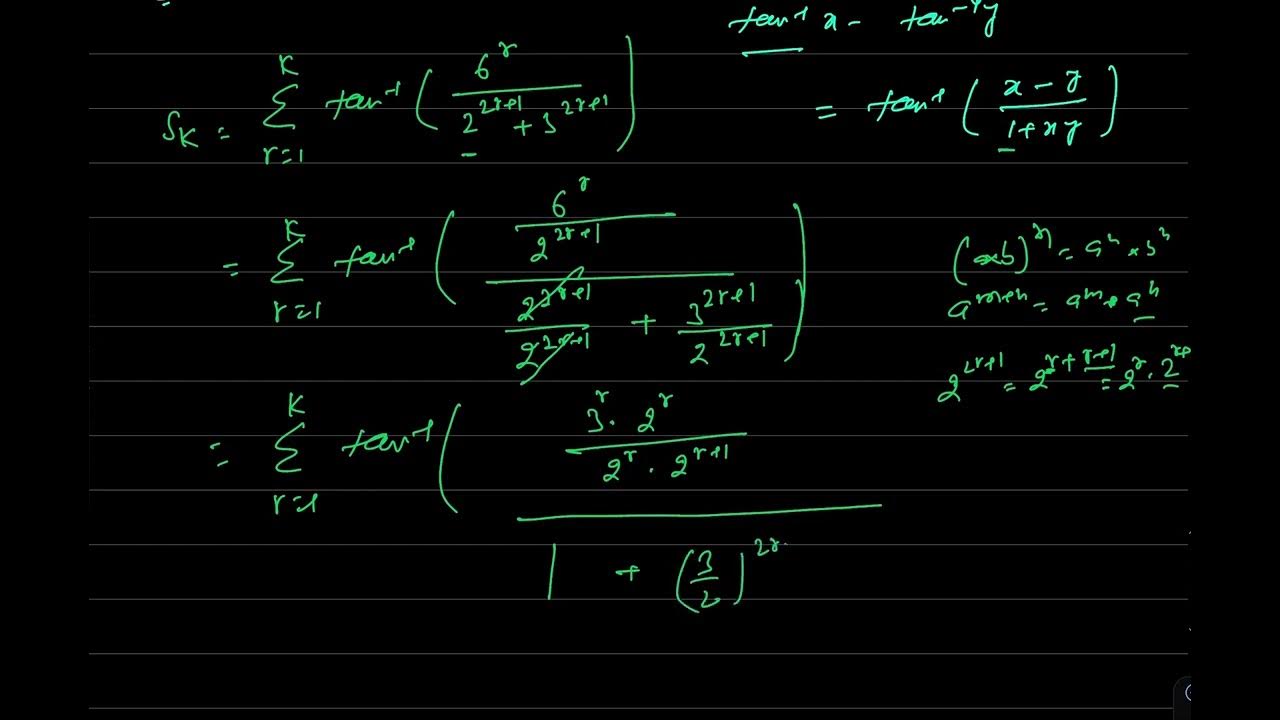 tan⁻¹ x - tan⁻¹ y
= tan⁻¹ ( (x - y) / (1 + xy) )
S_K = Σ_{r=1}^{K} tan⁻¹ ( 6^r / (2^{2r+1} + 3^{2r+1}) )
= Σ_{r=1}^{K} tan⁻¹ ( (6^r / 2^{2r+1}) / (2^{2r+1} / 2^{2r+1} + 3^{2r+1} / 2^{2r+1}) )
(a×b)^n = a^n × b^n
a^{m+n} = a^m × a^n
2^{2r+1} = 2^{r + r+1} = 2^r · 2^{r+}
= Σ_{r=1}^{K} tan⁻¹ ( (3^r · 2^r / (2^r · 2^{r+1})) / (1 + (3/2)^{2r}